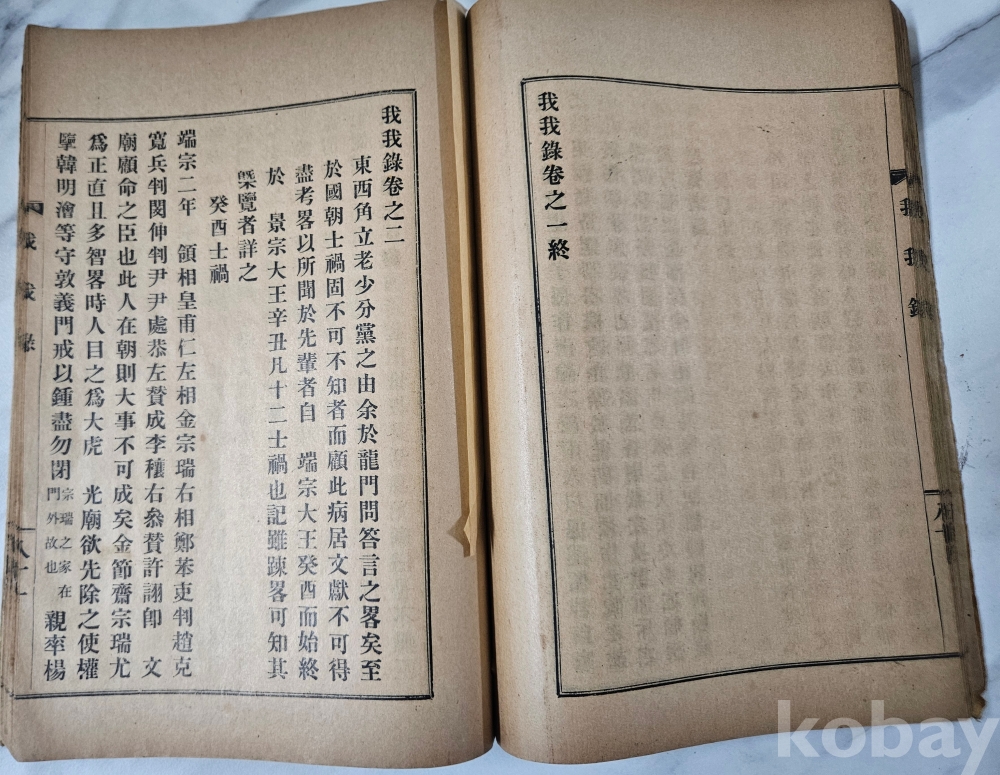 我我錄
八十
我我錄卷之一終
我我錄卷之二
東西角立老少分黨之由余於龍門問答言之畧矣至
於國朝士禍固不可不知者而顧此病居文獻不可得
盡考畧以所聞於先輩者自 端宗大王癸酉而始終
於 景宗大王辛丑凡十二士禍也記雖踈畧可知其
槩覽者詳之
癸酉士禍
端宗二年 領相皇甫仁左相金宗瑞右相鄭苯吏判趙克
寬兵判閔伸判尹尹處恭左賛成李穰右叅賛許詡卽 文
廟顧命之臣也此人在朝則大事不可成矣金節齋宗瑞尤
爲正直且多智畧時人目之爲大虎 光廟欲先除之使權
擥韓明澮等守敦義門戒以鍾盡勿閉 宗瑞之家在門外故也 親率楊
我我錄
八十一
kobay